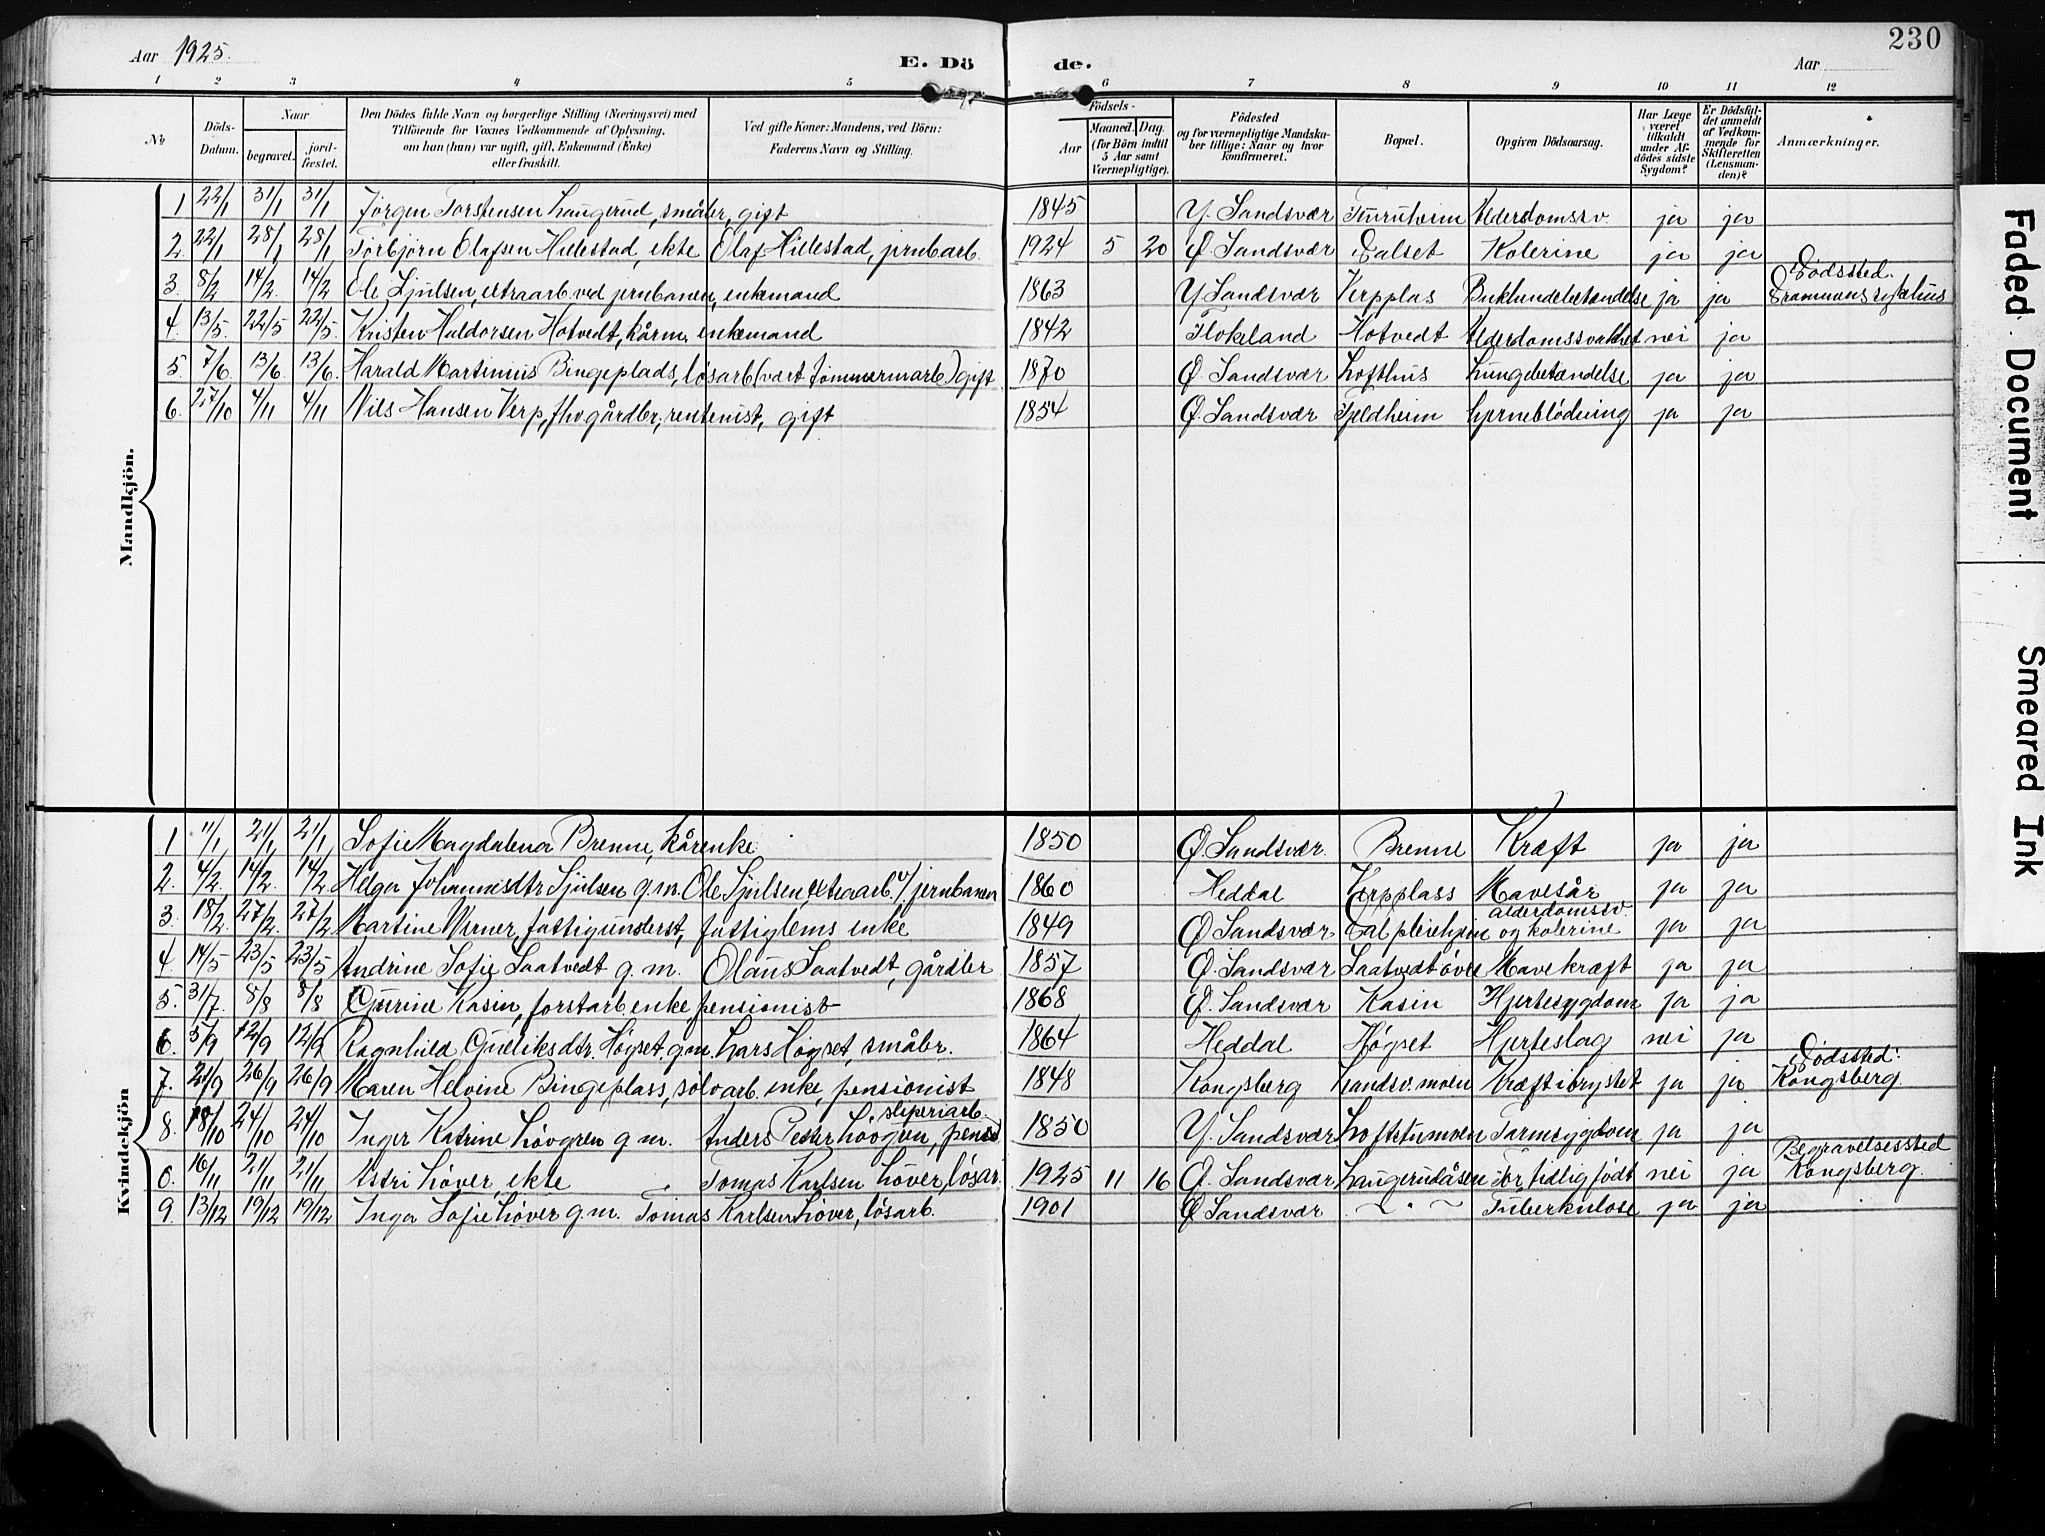 230
Aar 1925. E. Dö de. Aar
1 2 3 4 5 6 7 8 9 10 11 12
No
Döds-Datum.
Naar
begravet.
jord-fæstet.
Den Dödes fulde Navn og borgerlige Stilling (Næringsvei) med
Tilföiende for Voxnes Vedkommende af Oplysning.
om han (hun) var ugift, gift, Enkemand (Enke)
eller fraskilt.
Ved gifte Koner: Mandens, ved Börn:
Faderens Navn og Stilling.
Födsels-
Aar
Maaned. Dag.
(for Börn indtil
5 Aar samt
Værnepligtige).
Födested
og for værnepligtige Mandska-
ber tillige: Naar og hvor
konfirmeret.
Bopæl.
Opgiven Dödsaarsag.
Har Læge
været
tilkaldt
under Af-
dödes sidste
Sygdom?
Er Dödsfal-
det anmeldt
af Vedkom-
mende for
Skifteretten
(Lensman-
den)?
Anmærkninger.
Mandkjön.
1 22/1 31/1 31/1 Jörgen Torstensen Laugerud, småbr, gift 1845 Y. Sandsvær Furuheim Alderdomssv. ja ja
2. 22/1 28/1 28/1 Torbjörn Olafsen Hillestad, ekte Olaf Hillestad, jrnbarb. 1924 5 20 Ø. Sandsvær Dalset Kolerine ja ja
3. 8/2 14/2 14/2 Ole Sjulsen, extraarb. ved jernbanen, enkemand 1863 Y. Sandsvær Verpplas Buklindebetændelse ja ja Dødssted. Drammens sykehus
4. 13/5 22/5 22/5 Kristen Haldorsen Hotvedt, kårm, enkemand 1842 Flokeland Hotvedt Alderdomssvakhet nei ja
5. 7/6 13/6 13/6 Harald Martinius Bingeplads, lösarb (vært tömmermarb) gift 1870 Ø. Sandsvær Lofthus Lungebetændelse ja ja
6. 27/10 4/11 4/11 Nils Hansen Verp, fhv gårdbr, rentenist, gift 1854 Ø. Sandsvær Fjeldheim hjerneblödning ja ja
Kvindekjön
1 11/1 21/1 21/1 Sofie Magdalena Brenne, kårenke 1850 Ø. Sandsvær. Brenne Kræft ja ja
2. 4/2 14/2. 14/2 Helga Johannisdtr Sjulsen g.m. Ole Sjulsen, extraarb. v/ jernbanen 1860 Heddal Verpplass Mavesår ja ja
3. 18/2 27/2 27/2 Martine Werner, fattigunderst, fattiglems enke 1849 Ø Sandsvær alderdomssv. og kolerine ja ja
4. 14/5 23/5 23/5 Andrine Sofie Saatvedt g.m. Olaus Saatvedt, gårdbr 1857 Ø. Sandsvær Saatvedt övre Mavekræft ja ja
5. 31/7 8/8 8/8 Gurine Kasin, forstarb enke pensionist 1868 Ø. Sandsvær Kasin Hjertesygdom ja ja
6. 5/9 12/9 12/9 Ragnhild Guliksdtr. Högset, g.m. Lars Högset, småbr. 1864 Heddal Högset Hjerteslag nei ja
7. 21/9 26/9 26/9 Maren Helvine Bingeplass, sölvarb. enke, pensionist 1848 Kongsberg Landsv. moen Kræft i brystet ja ja Dødssted: Kongsberg.
8. 18/10 24/10 24/10 Inger Katrine Lövgren g.m. Anders Petter Lövgren, sliperiarb. pensj 1850 Y. Sandsvær Loftstumoen Tarmsygdom ja ja
0. 16/11 21/11 21/11 Astri Höver, ekte Tomas Karlsen Höver, lösar. 1925 11 16 Ø. Sandsvær Laugerudåsen For tidlig född nei ja Begravelsessted Kongsberg.
9. 13/12 19/12 19/12 Inga Sofie Höver g.m. Tomas Karlsen Höver, lösarb. 1901 Ø Sandsvær — " — Tuberkulose ja ja
Faded Document
Smeared Ink